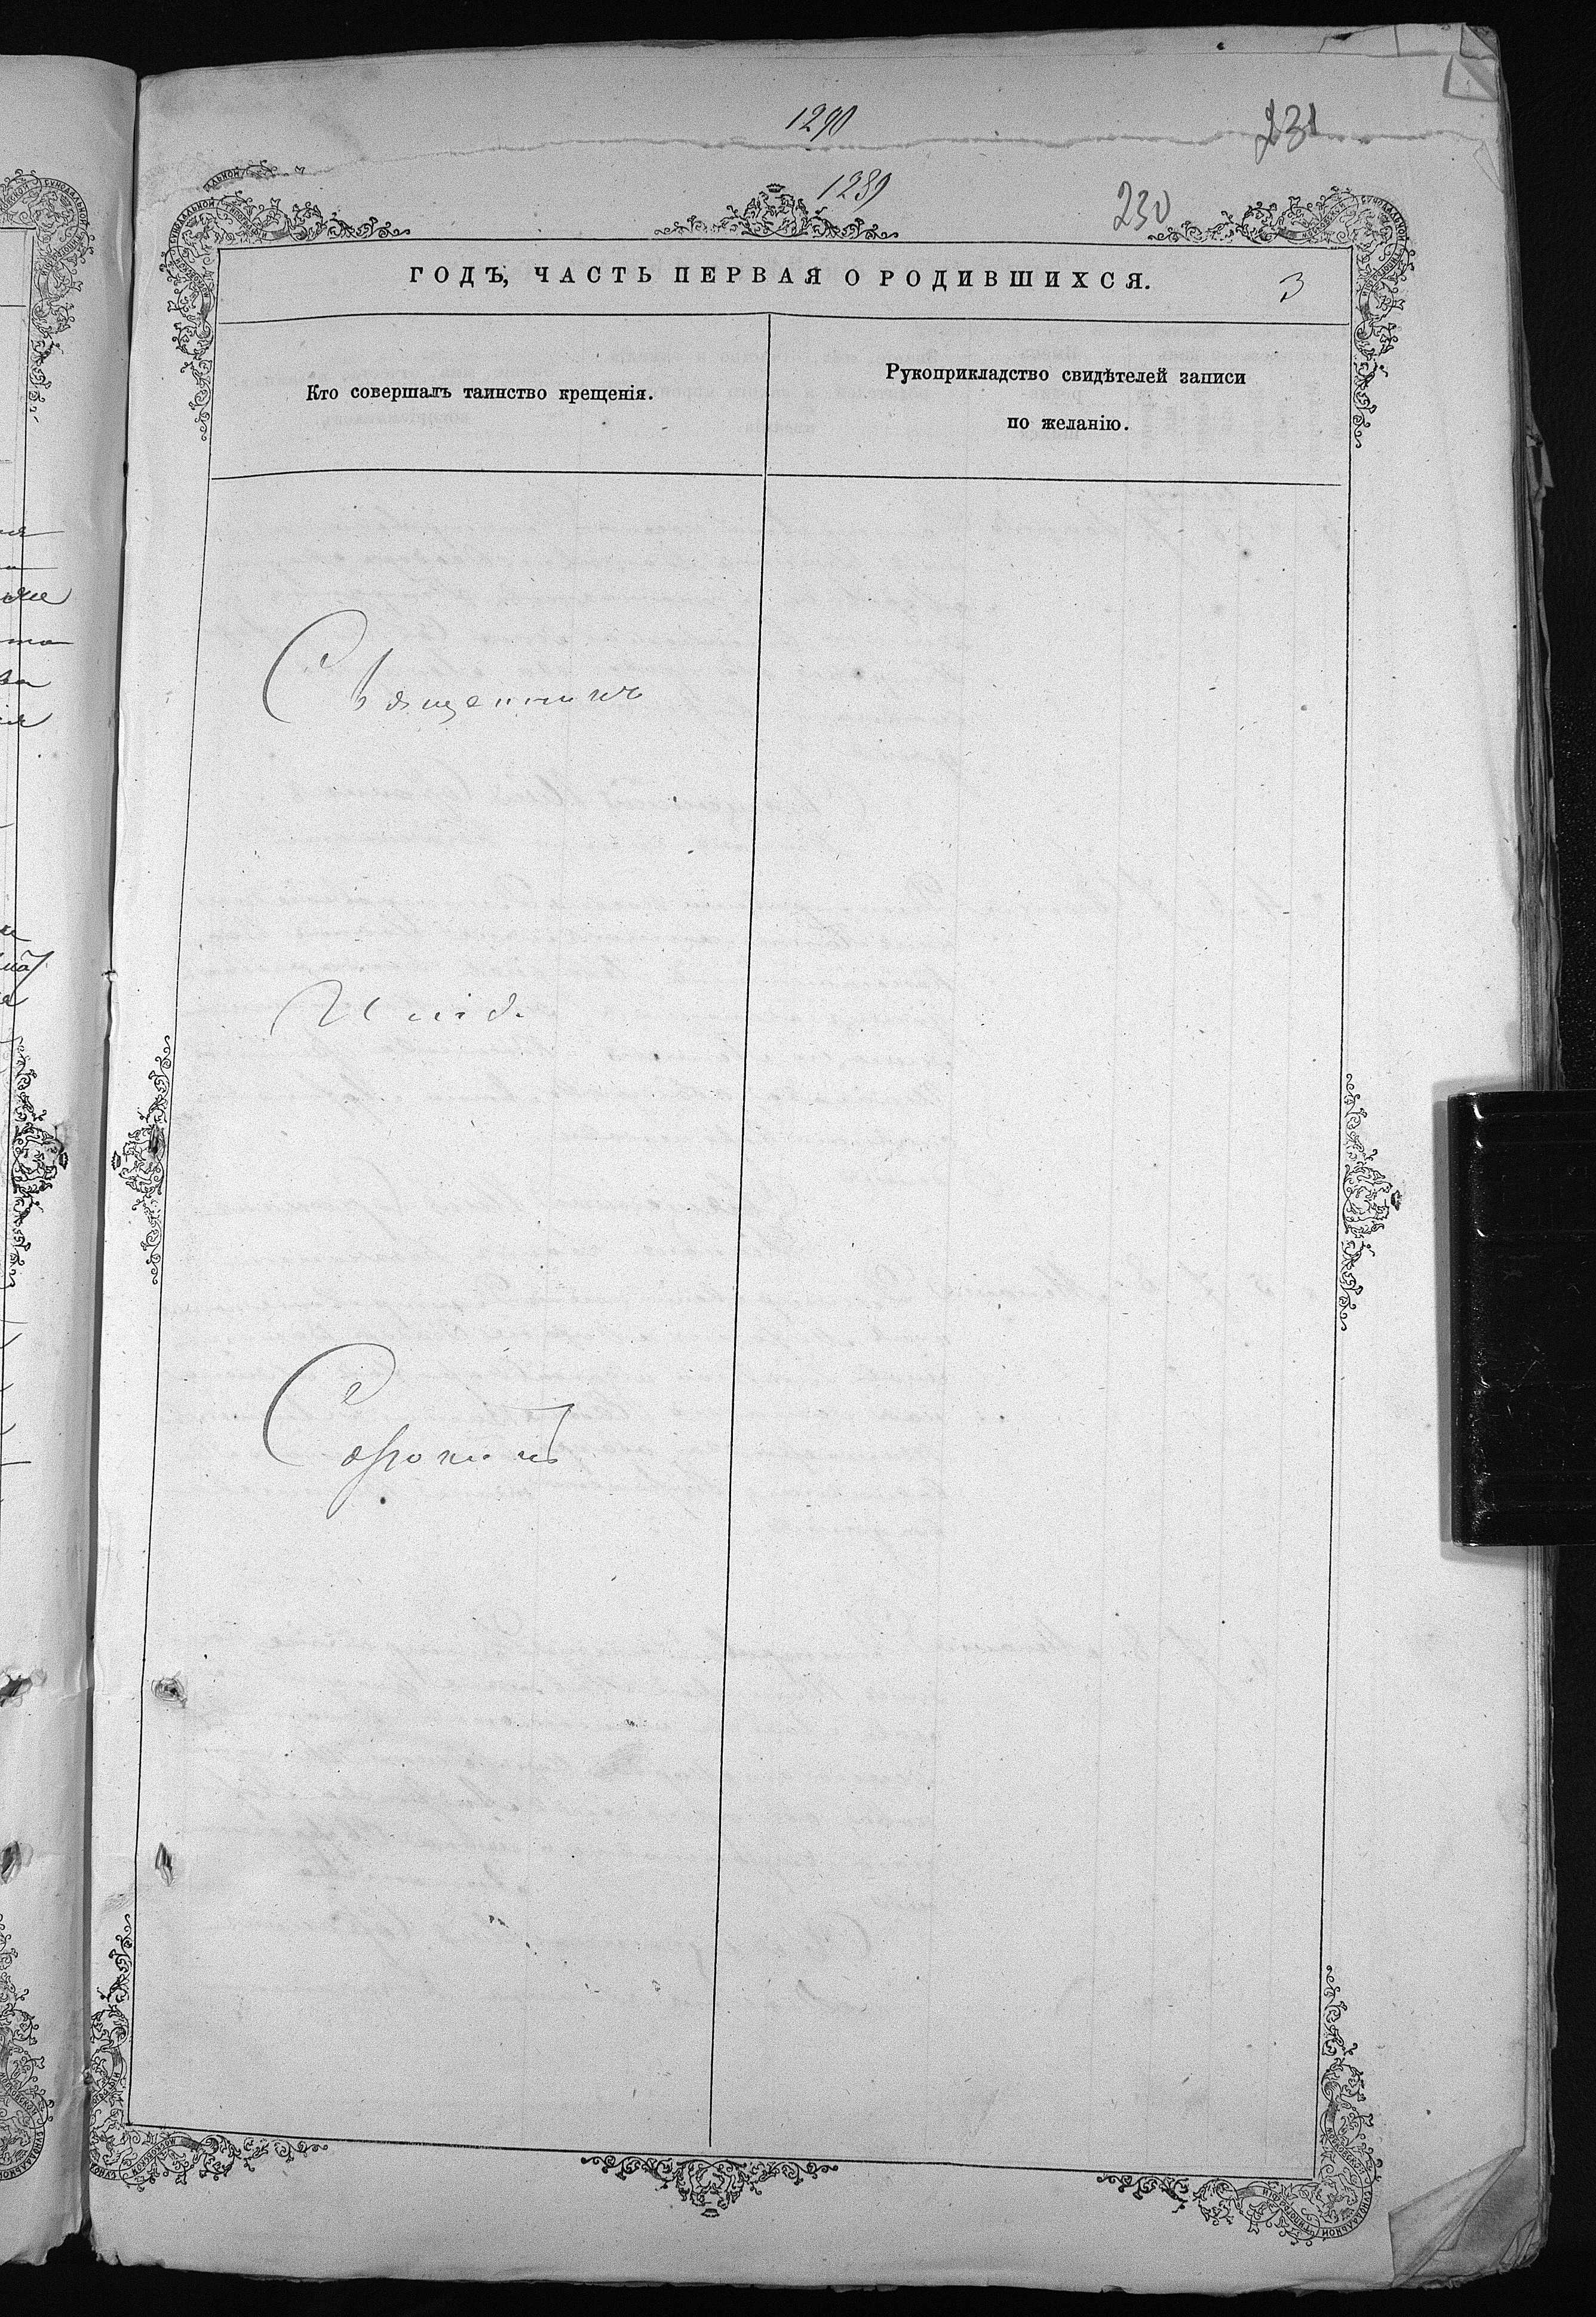 1290
231
1289
230
ГОДЪ, ЧАСТЬ ПЕРВАЯ О РОДИВШИХСЯ.
3
Кто совершалъ таинство крещенія.
Рукоприкладство свидѣтелей записи
по желанію.
Священникъ
Сорокинъ